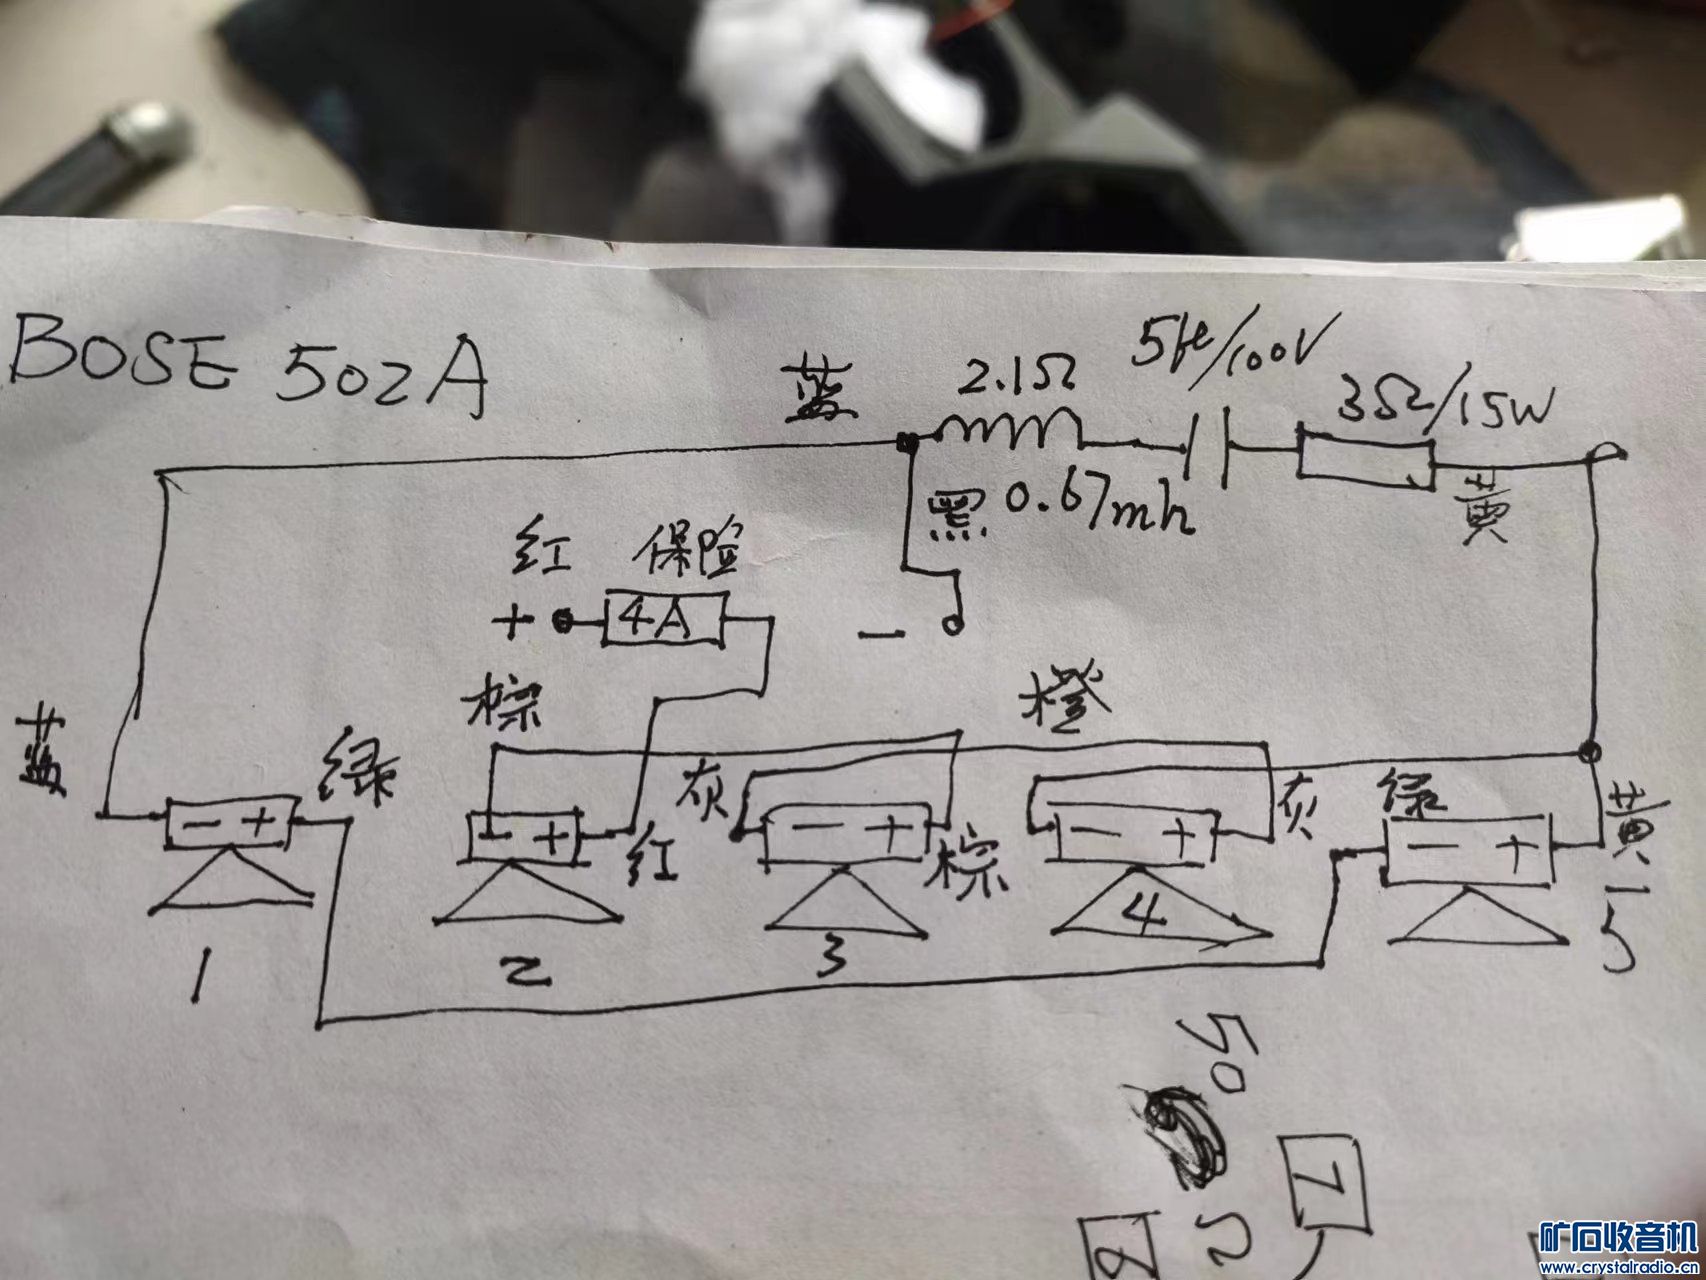 BOSE 502A
蓝
2.1Ω
5μ/100V
3Ω/15W
黑
0.67mh
黄
红
保险
+
4A
−
棕
橙
蓝
绿
灰
灰
绿
黄
− +
− +
− +
− +
− +
红
棕
1
2
3
4
5
50
2
1
8
矿石收音机
www.crystalradio.cn